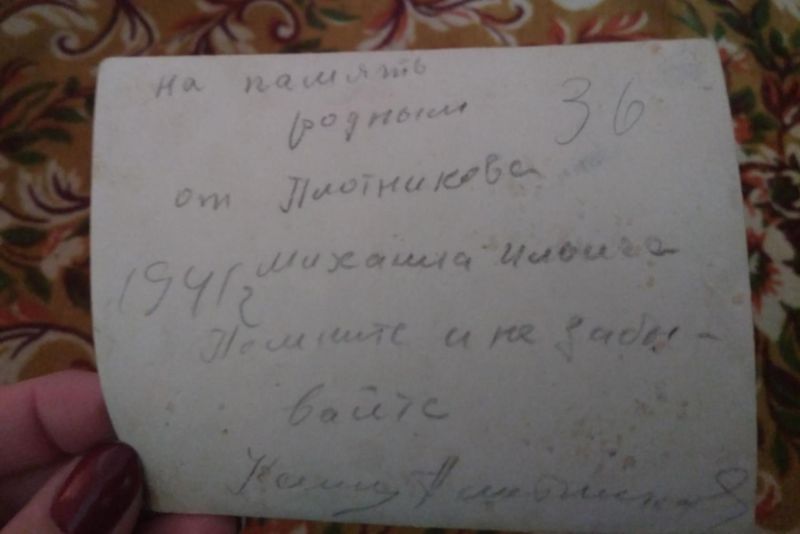 на память
родным
36
от Плотникова
1941г Михаила Ильича
Помните и не забы-
вайте